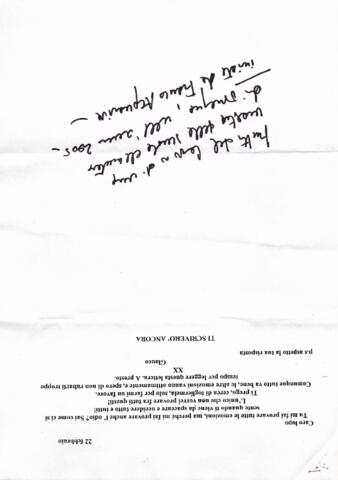 22 febbraio
Caro lupo
Tu mi fai provare tutte le emozioni, ma perché mi fai provare anche l' odio? Sai come ci si
sente quando ti viene da spaccare e uccidere tutto e tutti!
L'unica che non vorrei provare fra tutti questi!
Ti prego, cerca di togliermela, solo per farmi un favore.
Comunque tutto va bene, le altre emozioni vanno ottimamente, e spero di non rubarti troppo
tempo per leggere questa lettera. A presto.
XX
Glauco
p.s aspetto la tua risposta
TI SCRIVERO' ANCORA
frutto del lavoro di una
maestra delle scuole elementari
di nell'anno 2005 –
da Franco